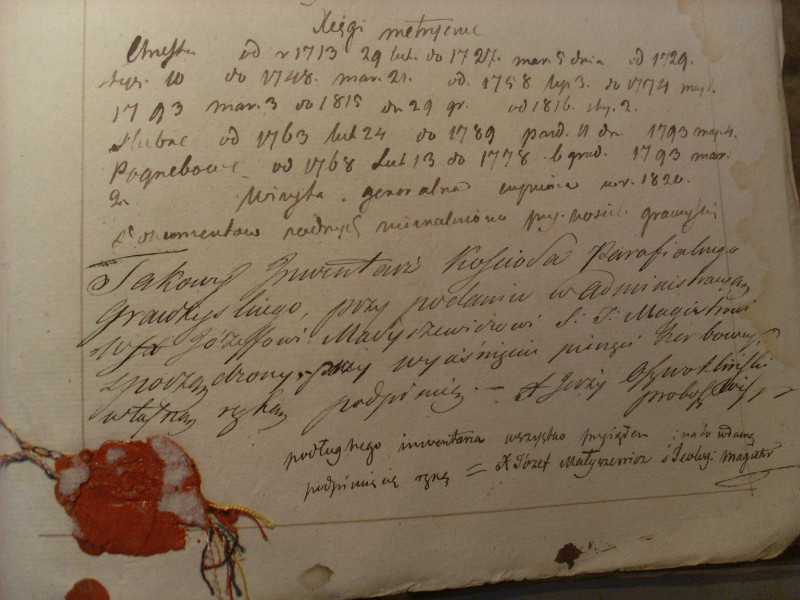 Xięgi metryczne
Chrestne od r 1713 29 lut. do 1727. mar. 5 dnia od 1729.
stycz. 10 do 1748. mar. 21. od. 1758 lip. 3. do 1774 maj.
1793 mar. 3 do 1815 dn. 29 gr. od 1816. sty. 2.
Slubne od 1763 lut 24 do 1789 pazd. 11 dn. 1793 maj. 4.
Pogrzebowe od 1768 Lut 13 do 1778. 6 grud. 1793 mar.
2. Wizyta generalna w r. 1820.
Dokumentow żadnych nieznaleziono przy kosciele
Takowy Inwentarz Kościoła Parafialnego
przy podaniu w administracyą
Józeffowi Matyszewiczowi S. T. Magistrowi
sporządzony przy wyciśnięciu pieczęci herbowey,
własną ręką podpisuię — X Jerzy
podług tego inwentarza wszystko przyjąłem i na to własną
podpisuię się ręką = X Józef Matyszewicz S Teologi magistr